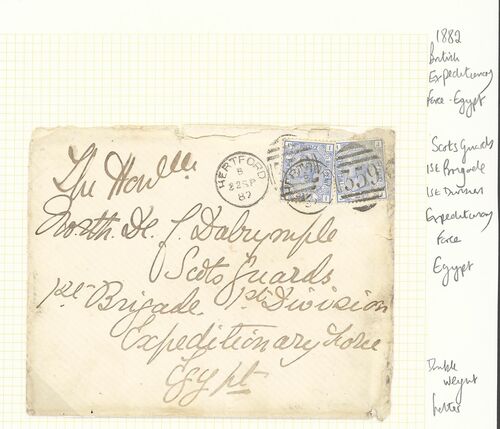 1882
British
Expeditionary
Force - Egypt
Scots Guards
1st Brigade
1st Division
Expeditionary
Force
Egypt
Double
weight
letter
HERTFORD
B
22 SP
82
359
The Honble
North. De. J. Dalrymple
Scots Guards
1st Brigade 1st Division
Expeditionary Force
Egypt